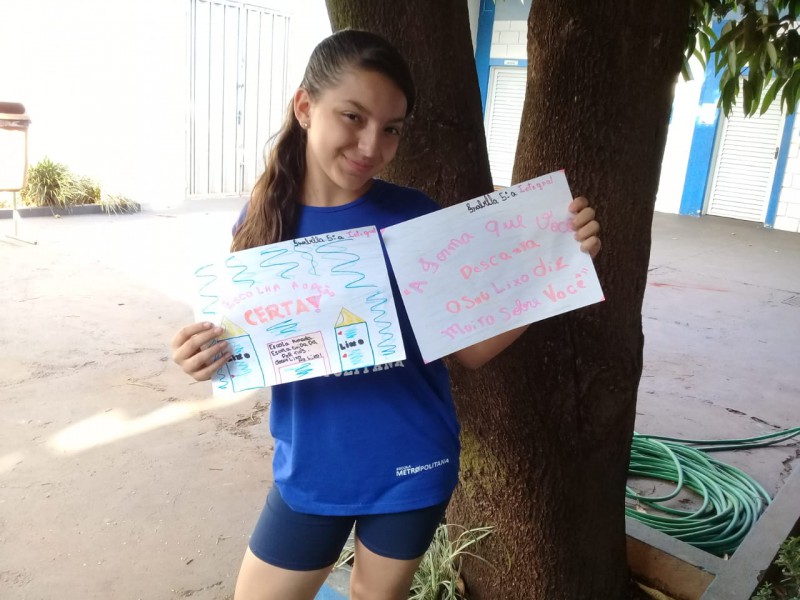 Isabella 5ºa Integral
ESCOLHA A OPÇÃO
CERTA!
LIXO
LIXO
Isabella 5ºa Integral
"A Forma Que Você
Descarta
O Seu Lixo diz
Muito Sobre Você"
ESCOLA
METROPOLITANA